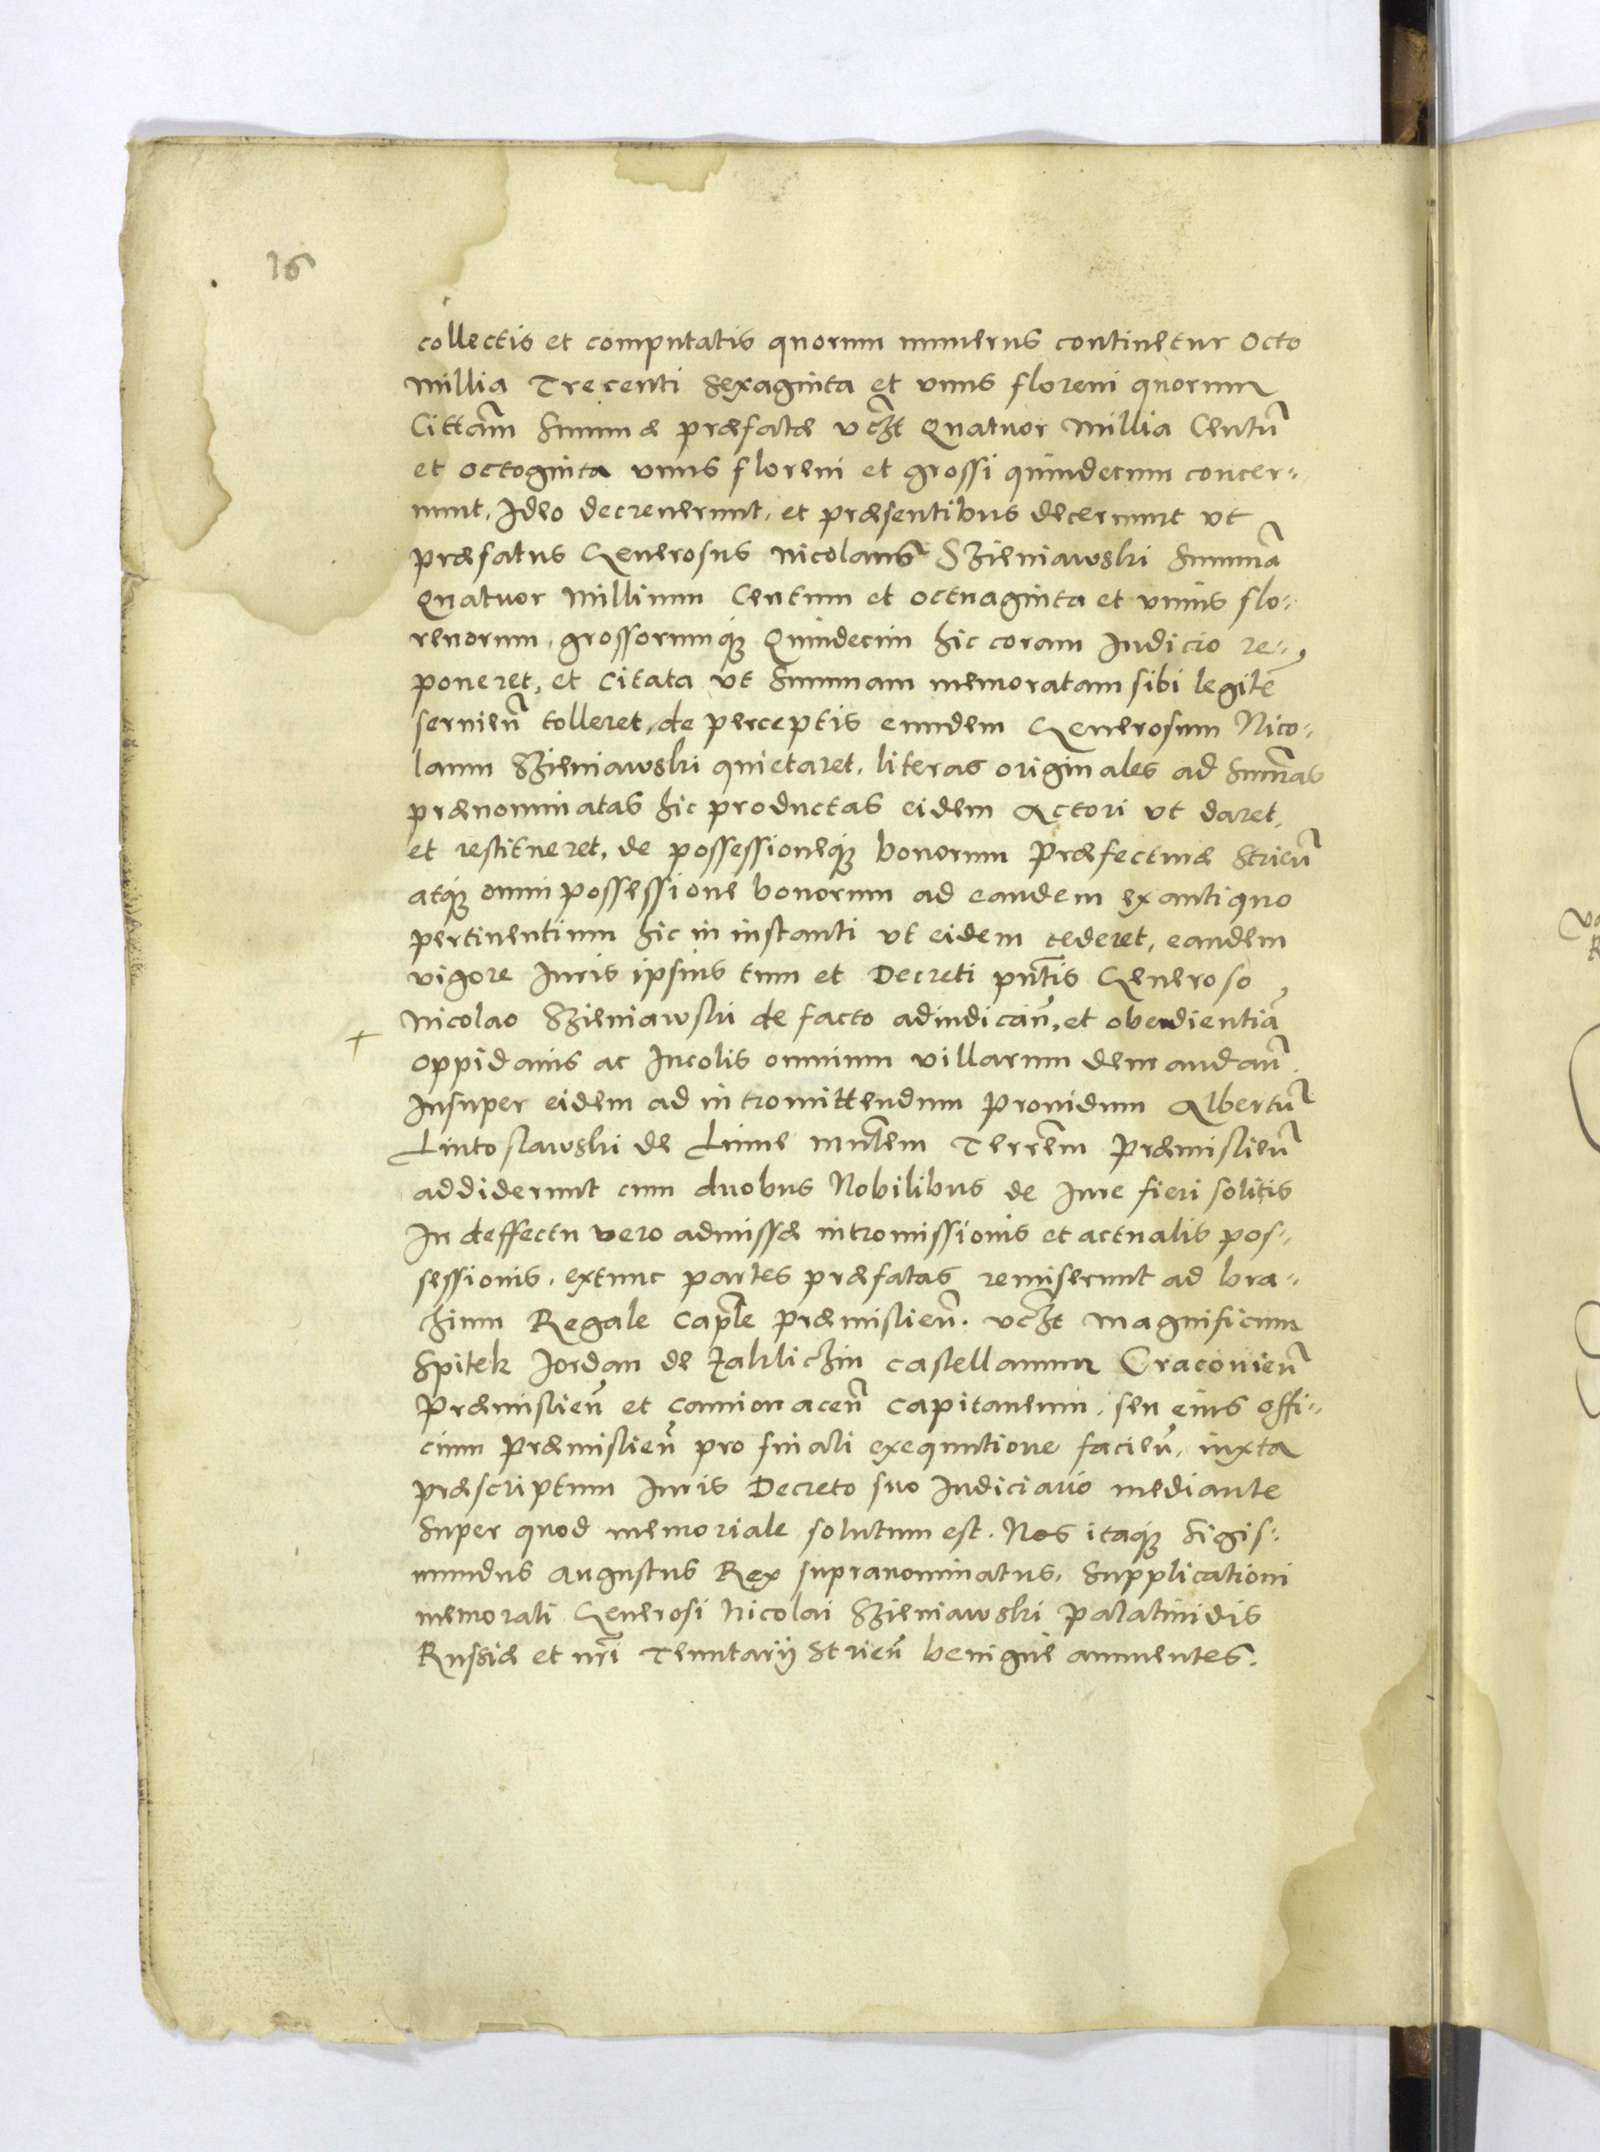 16
collectis et computatis quorum numerus continetur Octo
Millia Trecenti Sexaginta et vnus floreni quorum
Cittãm Summæ præfatæ vczt Quatuor Millia Centũ
et octoginta vnus floreni et grossi quindecim concer-
nunt, Ideo decreuerunt, et præsentibus decernunt vt
præfatus Generosus Nicolaus Szieniawski Summã
Quatuor Millium Centum et octuaginta et vnius flo-
renorum, grossorumq; Quindecim hic coram Iudicio re-
poneret, et Citata vt Summam memoratam sibi legitẽ
seruieñ tolleret, de perceptis eundem Generosum Nico-
laum Szieniawski quietaret, literas originales ad Summas
prænominatas hic productas eidem Actori vt daret,
et restitueret, de possessioneq; bonorum Præfecturæ Strieñ
atq; omni possessione bonorum ad eandem ex antiquo
pertinentium hic in instanti vt eidem cederet, eandem
vigore Iuris ipsius tum et Decreti pñtis Generoso
Nicolao Szieniawski de facto adiudicañ, et obedientiã
+ oppidanis ac Incolis omnium villarum demandañ
Insuper eidem ad intromittendum Prouidum Albertũ
Lintoslawski de Linne mñlem Terrẽm Præmislieñ
addiderunt cum duobus Nobilibus de Iure fieri solitis
In deffectu vero admissæ intromissionis et actualis pos-
sessionis, extunc partes præfatas remiserunt ad bra-
chium Regale Caplẽ Præmislieñ. vczt Magnificum
Spitek Jordan de Zakliczin Castellanum Cracouieñ
Præmislieñ et Camionaceñ Capitaneum, seu eius offi-
cium Præmislieñ pro finali exequutione facieñ, iuxta
præscriptum Iuris Decreto suo Iudiciario mediante
Super quod memoriale solutum est. Nos itaq; Sigis-
mundus Augustus Rex supranominatus, Supplicationi
memorati Generosi Nicolai Szieniawski Palatinidis
Russiæ et nr̃i Tenutarij Strieñ benigne annuentes.